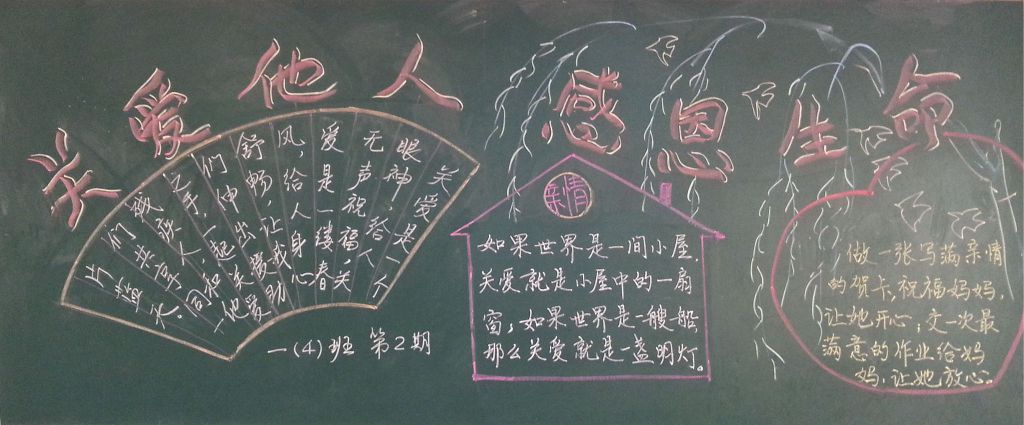 关爱他人
关爱是一个
眼神.给人
无声祝福,关
爱是一缕春
风,给人身心
舒畅,让我
们伸出
之手,一起
们共享
片蓝天.
一(4)班 第2期
感恩生命
亲情
如果世界是一间小屋,
关爱就是小屋中的一扇
窗;如果世界是一艘船
那么关爱就是一盏明灯。
做一张写满亲情
的贺卡,祝福妈妈,
让她开心;交一次最
满意的作业给妈
妈,让她放心。